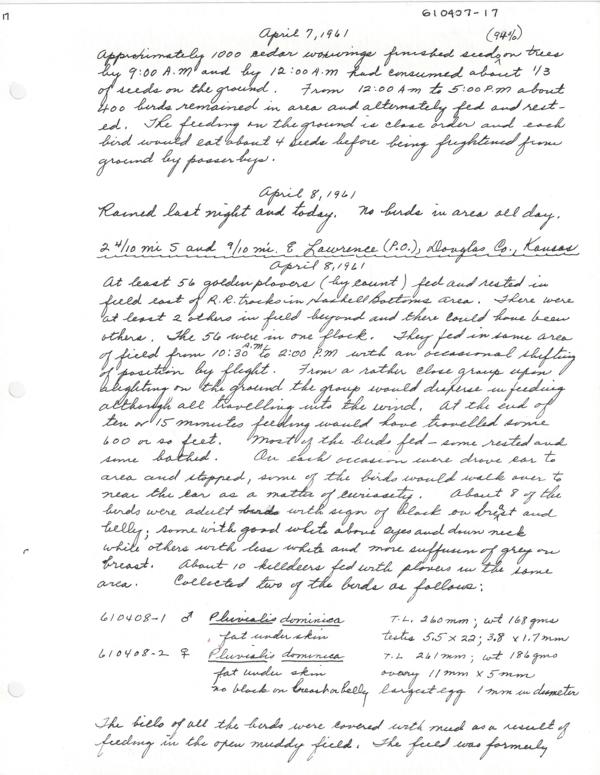 17
610407-17
April 7, 1961 (94%)
Approximately 1000 cedar waxwings finished seeds on trees
by 9:00 A.M and by 12:00 A.M had consumed about 1/3
of seeds on the ground. From 12:00 A.M to 5:00 P.M about
400 birds remained in area and alternately fed and rest-
ed. The feeding on the ground is close order and each
bird would eat about 4 seeds before being frightened from
ground by passer bys.
April 8, 1961
Rained last night and today. No birds in area all day.
2 4/10 mi S and 9/10 mi. E Lawrence (P.O.), Douglas Co., Kansas
April 8, 1961
At least 56 golden plovers (by count) fed and rested in
field east of R.R. tracks in Haskell Bottoms area. There were
at least 2 others in field beyond and there could have been
others. The 56 were in one flock. They fed in same area
of field from 10:30 A.M to 2:00 P.M with an occasional shifting
of position by flight. From a rather close group upon
alighting on the ground the group would disperse in feeding
although all travelling into the wind. At the end of
ten or 15 minutes feeding would have travelled some
600 or so feet. Most of the birds fed - some rested and
some bathed. On each occasion were drove car to
area and stopped, some of the birds would walk over to
near the car as a matter of curiosity. About 8 of the
birds were adult birds with sign of black on breast and
belly; some with good white above eyes and down neck
while others with less white and more suffusion of grey on
breast. About 10 killdeers fed with plovers in the same
area. Collected two of the birds as follows:
610408-1 ♂ Pluvialis dominica T.L. 260 mm; wt 168 gms
fat under skin testis 5.5 x 22; 3.8 x 1.7 mm
610408-2 ♀ Pluvialis dominica T.L 261 mm; wt 186 gms
fat under skin ovary 11 mm x 5 mm
no black on breast or belly largest egg 1 mm in diameter
The bills of all the birds were covered with mud as a result of
feeding in the open muddy field. The field was formerly